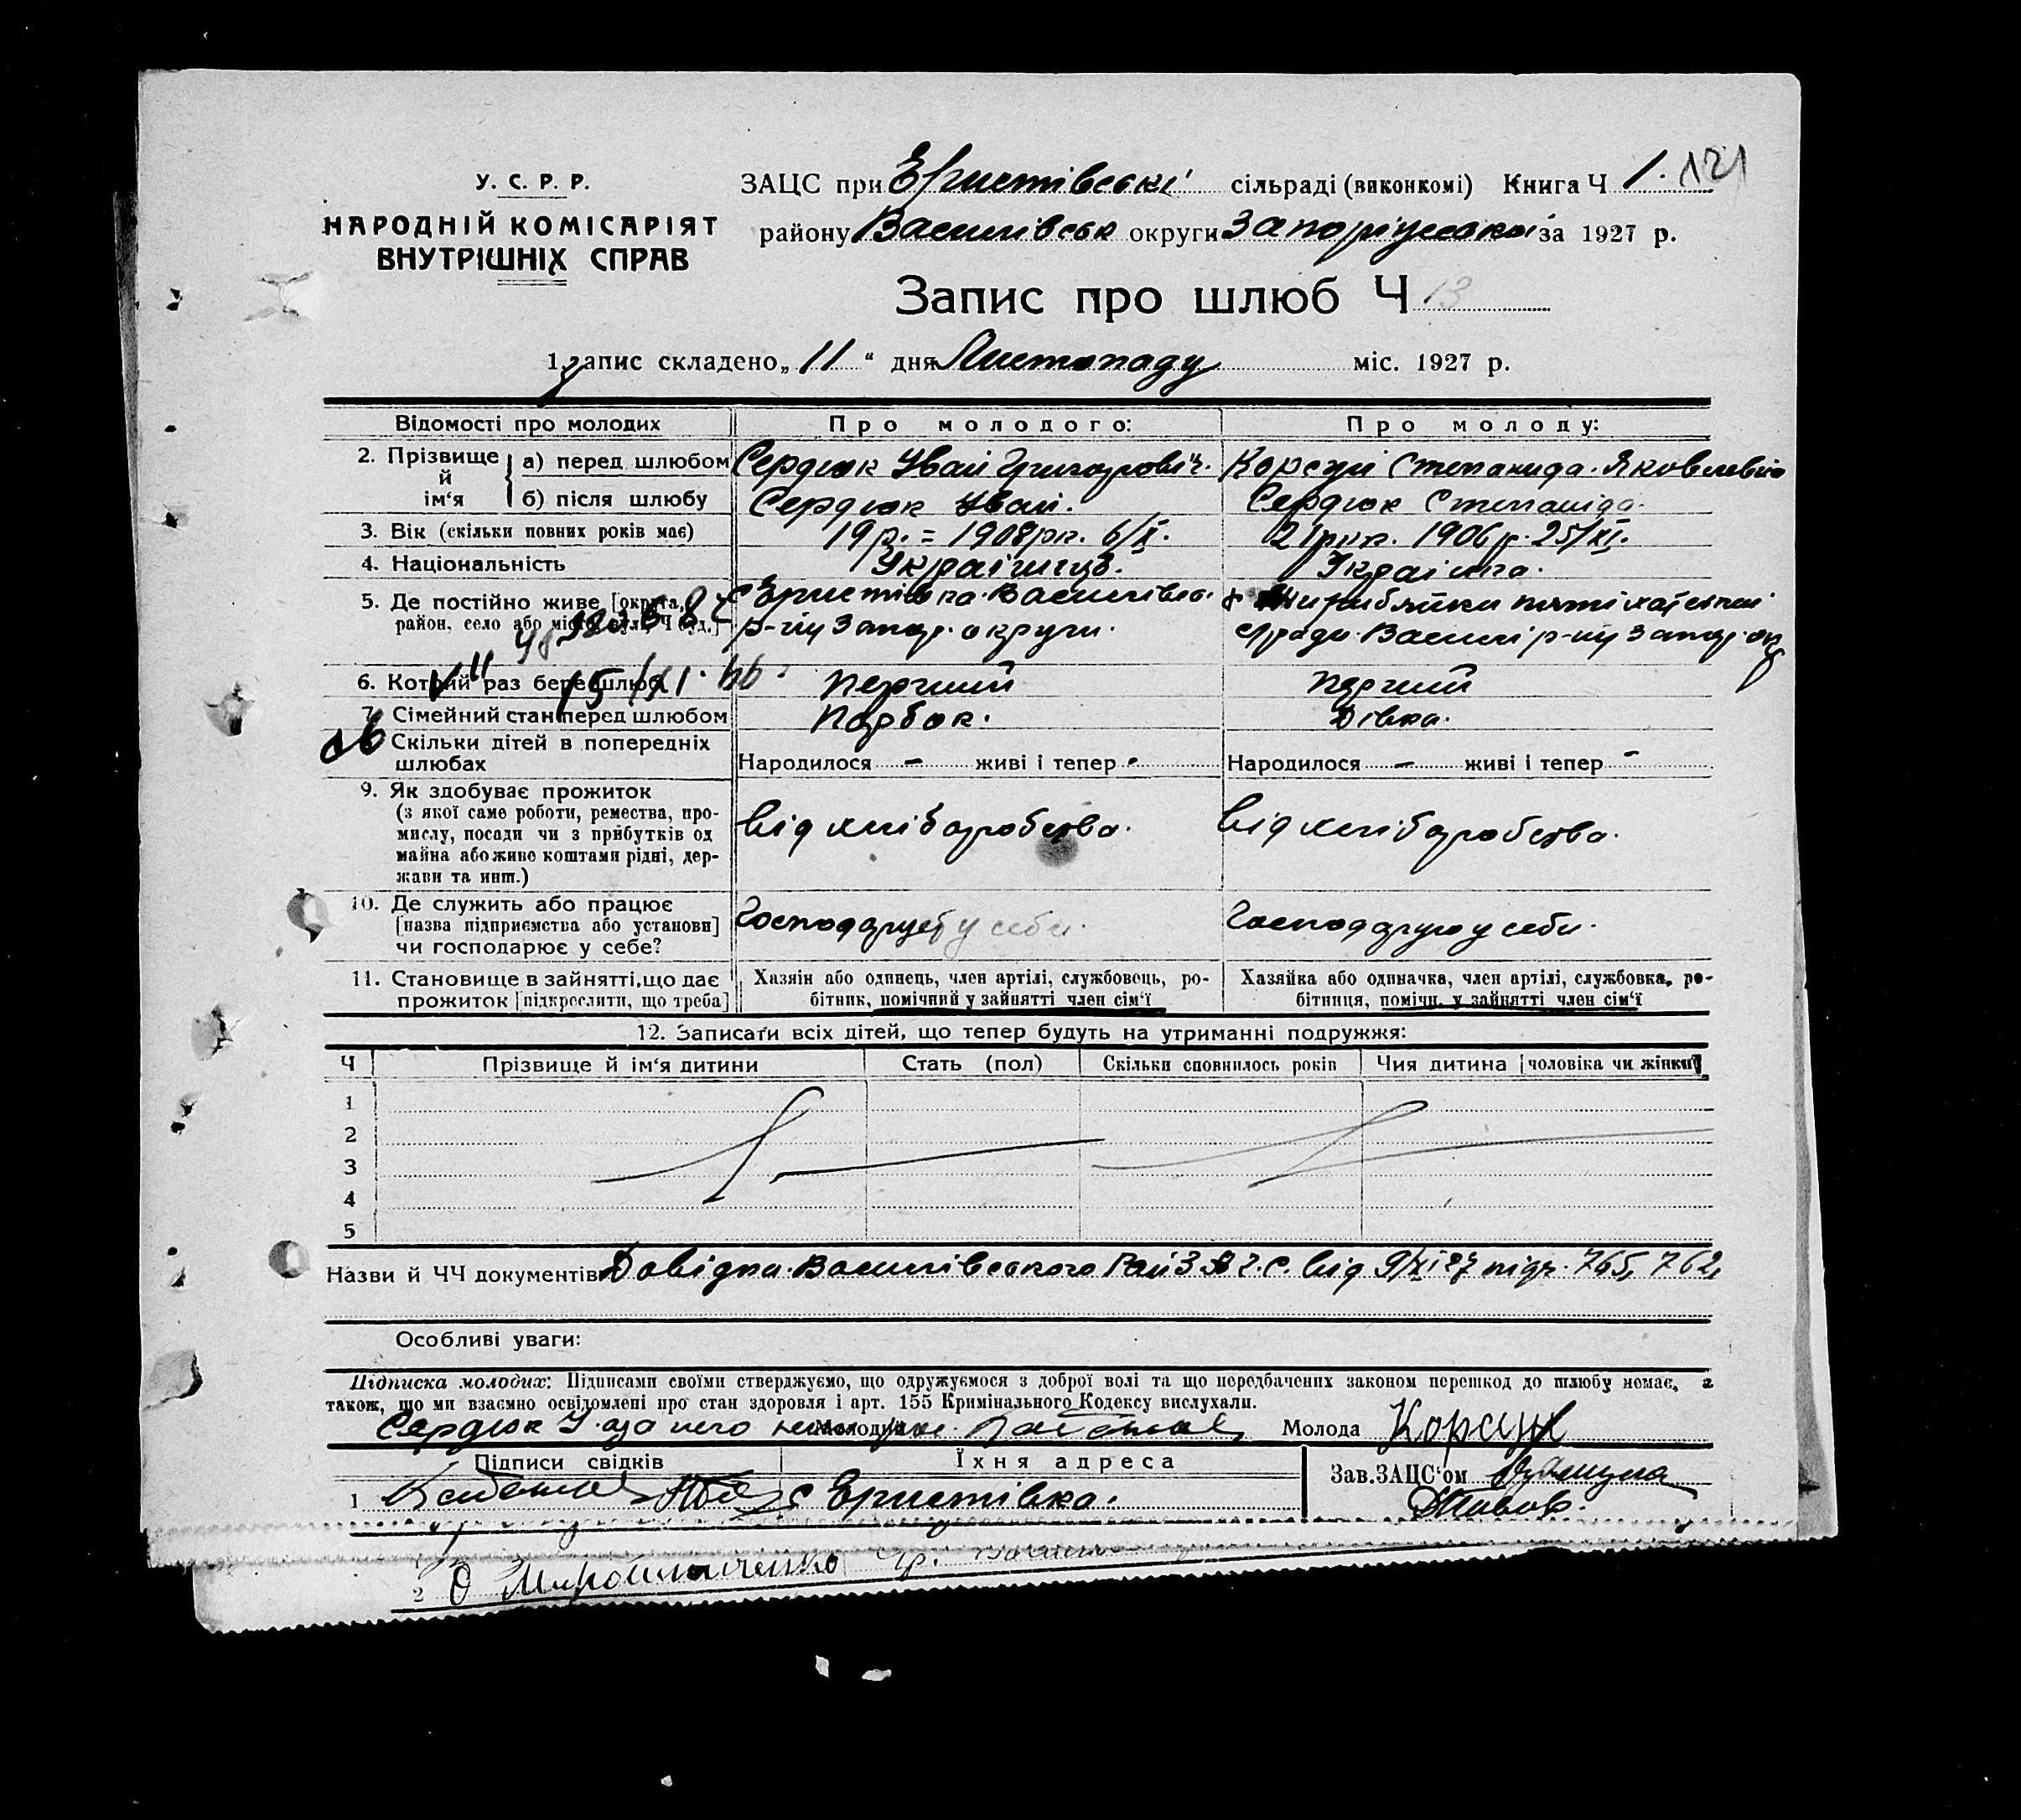 У. С. Р. Р.
НАРОДНІЙ КОМІСАРІЯТ
ВНУТРІШНІХ СПРАВ
ЗАЦС при Ернстівські сільраді (виконкомі) Книга Ч 1. 121
району Василівськ округи Запоріжської за 1927 р.
Запис про шлюб Ч 13
1. Запис складено „ 11 “ дня Листопаду міс. 1927 р.
Відомості про молодих
Про молодого:
Про молоду:
2. Прізвище й ім‘я
а) перед шлюбом
Сердюк Иван Григорович.
Корсун Степанида Яковлевна
б) після шлюбу
Сердюк Иван.
Сердюк Степаніда.
3. Вік (скільки повних років має)
19 р. = 1908 рк. 6/X.
21 рик. 1906 р. 25/XI.
4. Національність
Українців.
Українка.
5. Де постійно живе [округа, район, село або місто, вул., Ч буд.]
с Ернстівка Василівск.
р-ну Запор. округи.
с/ради Василі р-ну Запор. окр
6. Котрий раз бере шлюб
перчий
перчий
15/XI. 66.
7. Сімейний стан перед шлюбом
Парбок.
Дівка.
Скільки дітей в попередніх шлюбах
Народилося — живі і тепер -
Народилося — живі і тепер -
9. Як здобуває прожиток
(з якої саме роботи, ремества, промислу, посади чи з прибутків од майна або живе коштами рідні, держави та инш.)
від хліборобства.
від хліборобства.
10. Де служить або працює
[назва підприємства або установи]
чи господарює у себе?
Господарує у себи.
Господарую у себи.
11. Становище в зайнятті, що дає прожиток [підкреслити, що треба]
Хазяїн або одинець, член артілі, службовець, робітник, помічний у зайнятті член сім‘ї
Хазяйка або одиначка, член артілі, службовка, робітниця, помічн. у зайнятті член сім‘ї
12. Записати всіх дітей, що тепер будуть на утриманні подружжя:
Ч
Прізвище й ім‘я дитини
Стать (пол)
Скільки сповнилось років
Чия дитина [чоловіка чи жінки]
1
2
3
4
5
Назви й ЧЧ документів Довідка Василівського Рай З.А.Г.С. від 9/XI 27 підч. 765, 762,
Особливі уваги:
Підписка молодих: Підписами своїми стверджуємо, що одружуємося з доброї волі та що передбачених законом перешкод до шлюбу немає, а
також, що ми взаємно освідомлені про стан здоровля і арт. 155 Кримінального Кодексу вислухали.
Сердюк И. аза него Молодий
Молода Корсун
Підписи свідків
Їхня адреса
Зав. ЗАЦС‘ом
1
с Ернстівка.
2 О Мирошниченко